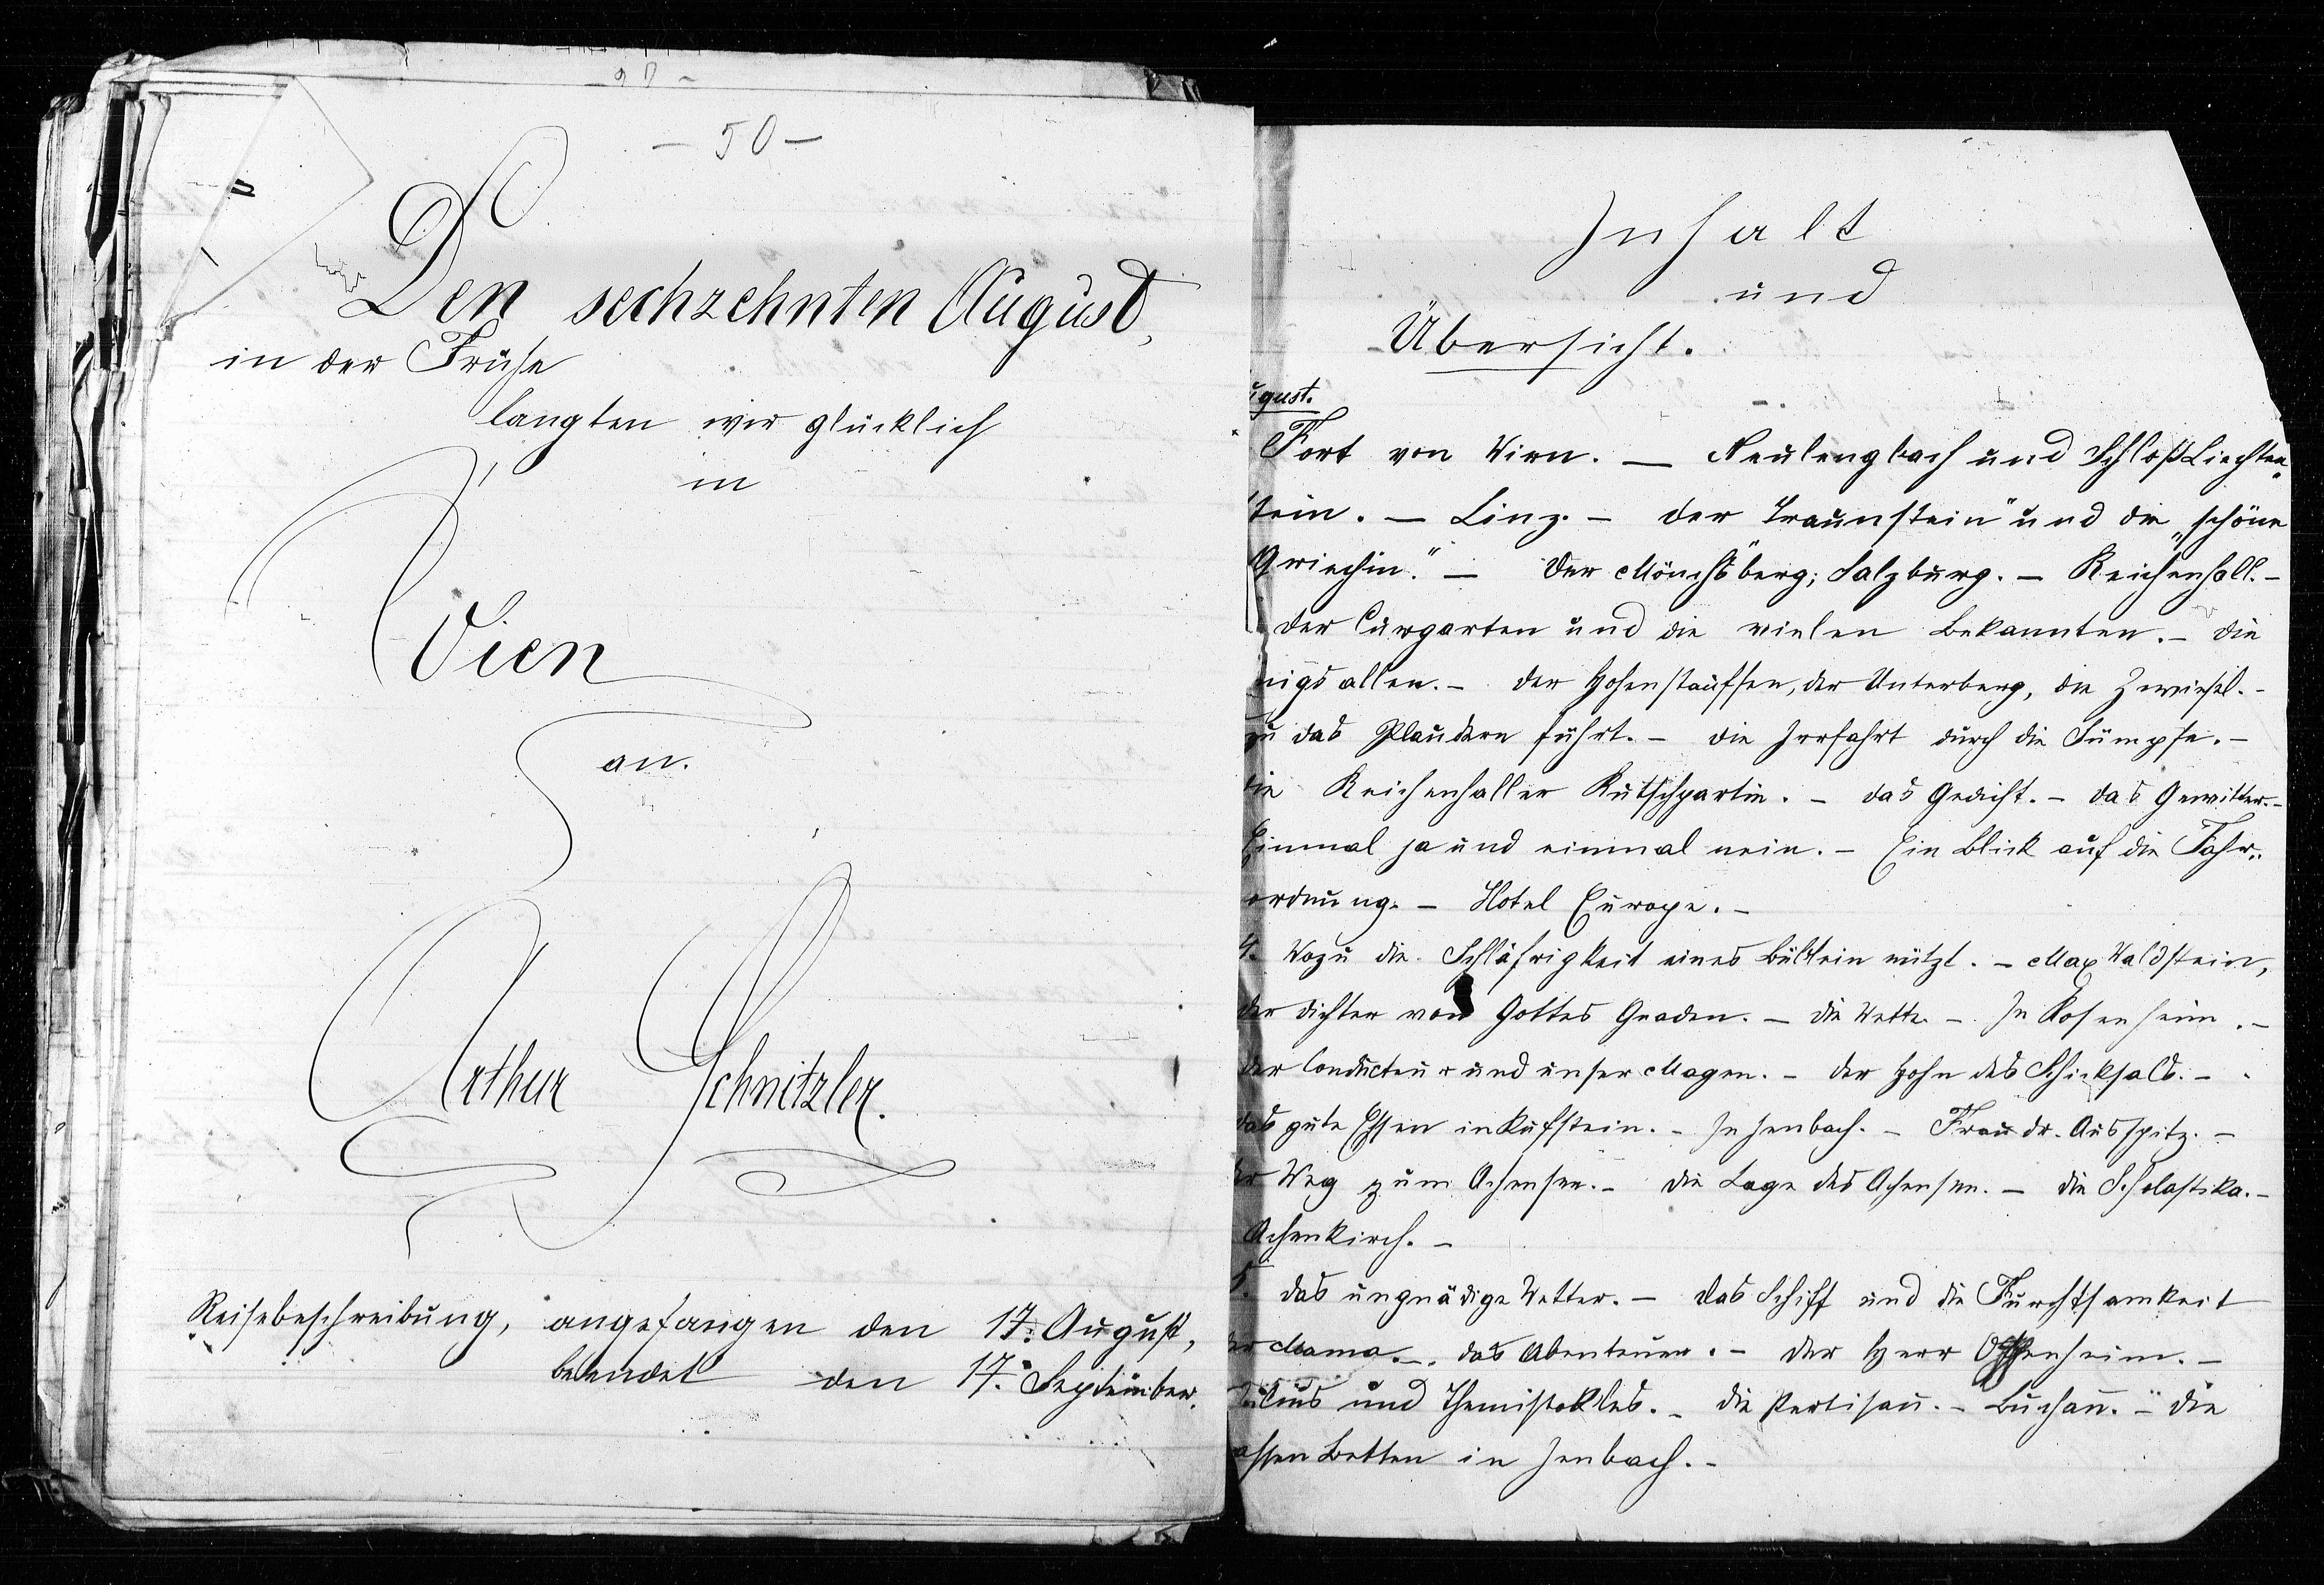 - 50 -
Den sechzehnten August,
in der Frühe
langten wir glücklich
in
Wien
an.
Arthur Schnitzler.
Reisebeschreibung, angefangen den 17. August,
beendet den 17. September.
Inhalt
und
Übersicht.
ugust.
Fort von Wien. — Neulengbach und Schloß Liechten-
stein. — Linz. — Der Traunstein" und die „schöne
Griechin." — Der Mönchsberg; Salzburg. — Reichenhall. —
Der Curgarten und die vielen Bekannten. — Die
nigsallee. — Der Hohenstauffen, der Unterberg, die Zwiesel. —
zu das Plaudern führt. — Die Irrfahrt durch die Sümpfe. —
die Reichenhaller Kutschpartie. — Das Gedicht. — Das Gewitter. —
Einmal ja und einmal nein. — Ein Blick auf die Fahr-
ordnung. — Hotel Europe. —
4. Wozu die Schläfrigkeit eines nützt. — Max Waldstein,
der Dichter von Gottes Gnaden. — Die Wette. — In Rosenheim. —
der Conducteur und unser Magen. — Der Hohn des Schicksals. —
das gute Essen in Kufstein. — In Jenbach. — Frau Dr. Auspitz. —
der Weg zum Achensee. — Die Lage des Achensee. — Die Scholastika. —
Achenkirch. —
5. Das ungnädige Wetter. — Das Schiff und die Furchtsamkeit
der Mama. — Das Abenteuer. — Der Herr Oppenheim. —
und Themistokles. — Die Pertisau. — Buchau. — Die
assen Betten in Jenbach. —